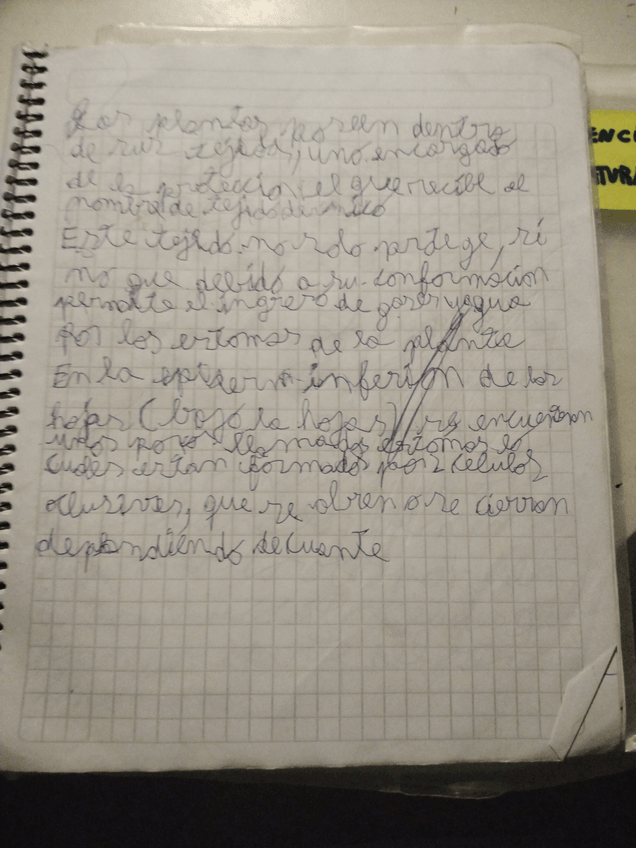 Las plantas poseen dentro
de sus tejidos, uno encargado
de la protección el que recibe el
nombre de tejido dermico
Este tejido no solo protege, si
no que debido a su conformación
permite el ingreso de gases y agua
por los estomas de la planta
En la epiderm inferior de las
hojas (bajo la hojas) se encuentran
unos poro llamados estomas lo
cuales estan formados por 2 celulas
oclusivas, que se abren o se cierran
dependiendo de cuante
ENC
ATURA